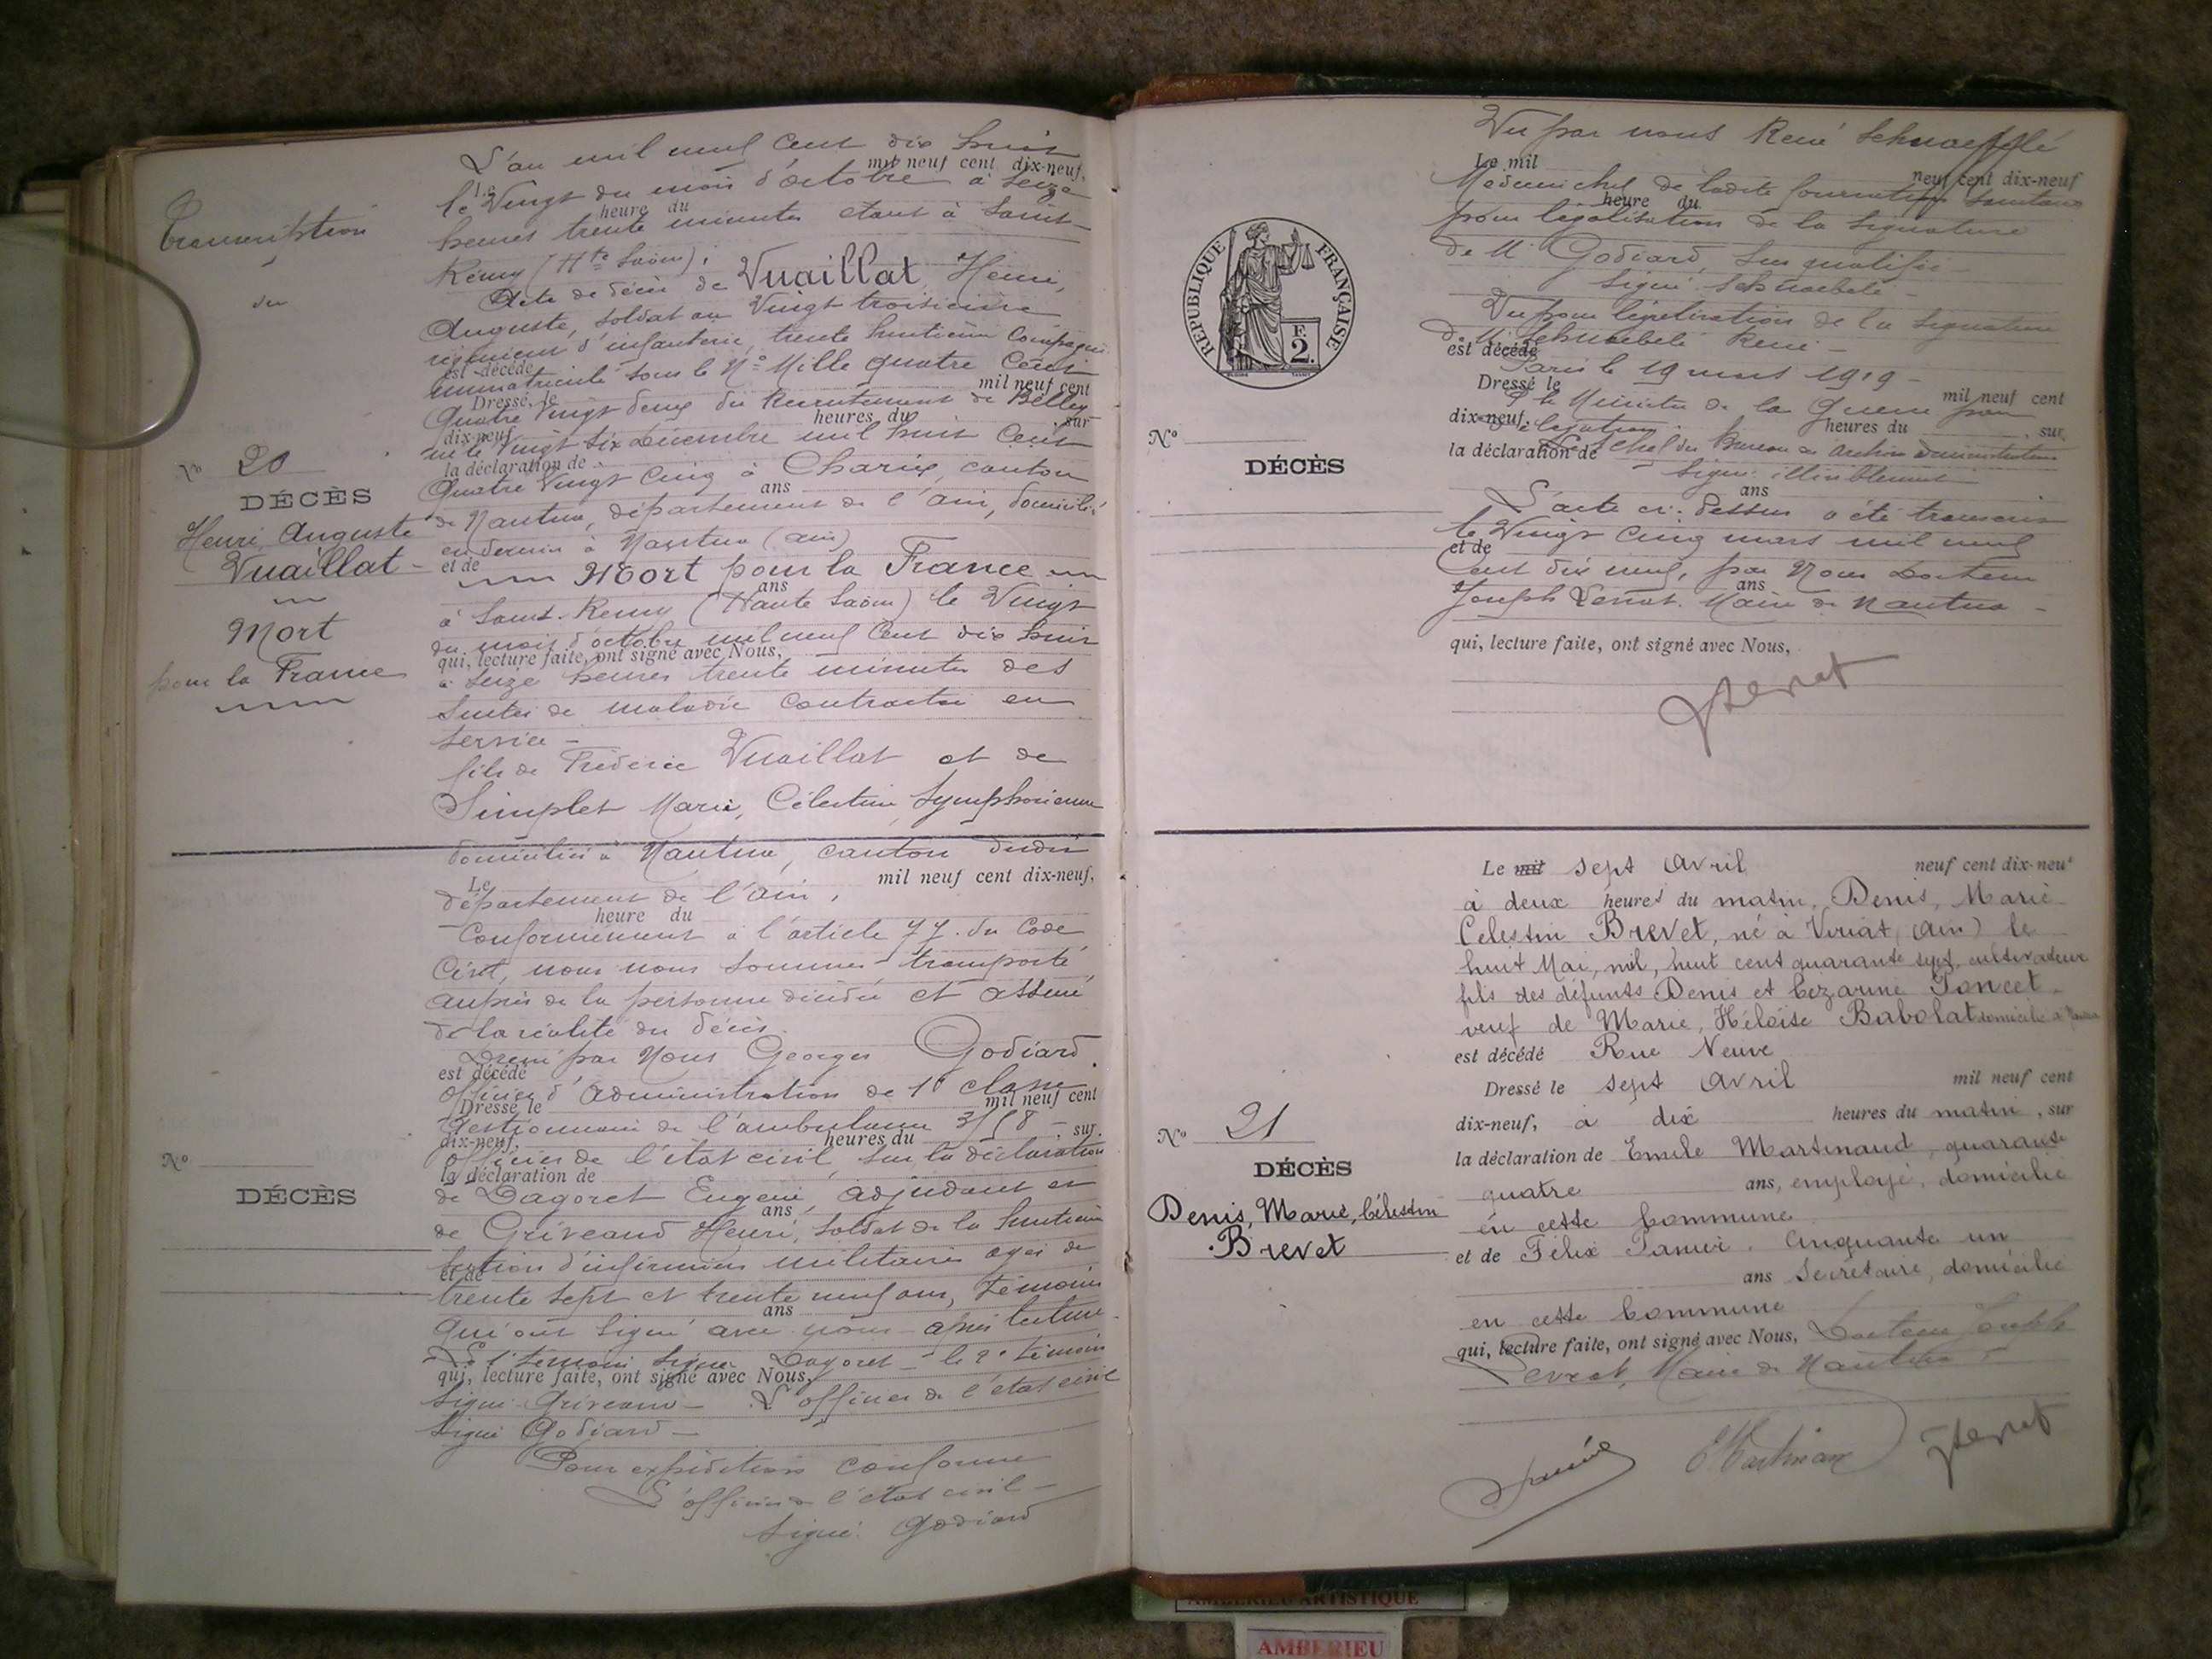 Transcription
du
N° 20
DÉCÈS
Henri Auguste
Vuaillat
Mort
pour la France
L'an mil neuf cent dix huit
mil neuf cent dix-neuf,
le Vingt du mois d'octobre à seize
Le
heure du
heures trente minutes étant à Saint-
Rémy (Hte Saône).
Acte de décès de Vuaillat, Henri,
Auguste, soldat au Vingt troisième
régiment d'infanterie, trente huitième Compagnie
est décédé
immatriculé sous le N° Mille quatre Cent
Dressé le
mil neuf cent
Quatre Vingt deux du Recrutement de Belley
heures du
sur
dix-neuf,
né le Vingt six Décembre mil huit Cent
la déclaration de
Quatre Vingt Cinq à Charix, canton
ans
de Nantua, département de l'Ain, domicilié
en dernier à Nantua (Ain)
et de
Mort pour la France
ans
à Saint-Remy (Haute Saône) le Vingt
du mois d'octobre mil neuf Cent dix huit
qui, lecture faite, ont signé avec Nous,
à seize heures trente minutes des
suites de maladie contractée en
service -
fils de Frédéric Vuaillat et de
Simplet Marie, Célestine, Symphorienne
domiciliés à Nantua, canton dudit
Le
mil neuf cent dix-neuf,
département de l'Ain,
heure du
Conformément à l'article 77 du Code
Civil, nous nous sommes transporté
auprès de la personne décédée et assuré
de la réalité du décès.
Dressé par Nous Georges Godiard
est décédé
officier d'administration de 1e classe
Dressé le
mil neuf cent
Gestionnaire de l'ambulance 3/58 -
dix-neuf,
heures du
, sur
officier de l'état civil, sur la déclaration
la déclaration de
N°
DÉCÈS
de Dagoret Eugène, adjudant et
ans
de Griveaud Henri, soldat de la huitième
section d'infirmiers militaires agés de
et de
trente sept et trente neuf ans, témoins
ans
qui ont signé avec nous après lecture
Le 1e témoin signé Dagoret - le 2e témoin
qui, lecture faite, ont signé avec Nous,
signé Griveaud - L'officier de l'état civil
signé Godiard -
Pour expédition conforme
L'officier de l'état civil -
signé: Godiard
Vu par nous René
Le mil
neuf cent dix-neuf
Médecin chef de ladite formation sanitaire
heure du
pour légalisation de la signature
de M. Godiard, sus qualifié
signé
Vu pour légalisation de la signature
de M. René -
est décédé
Paris le 19 mars 1919 -
Dressé le
mil neuf cent
P. le Ministre de la Guerre par
dix-neuf,
heures du
, sur
délégation.
la déclaration de
Le chef du Bureau des Archives administratives
Signé: illisiblement
ans
L'acte ci-dessus a été transcrit
le Vingt Cinq mars mil neuf
et de
Cent dix neuf, par Nous Docteur
ans
Joseph Levrat. Maire de Nantua -
qui, lecture faite, ont signé avec Nous,
JLevrat
RÉPUBLIQUE FRANÇAISE
F.
2.
N°
DÉCÈS
N° 21
DÉCÈS
Denis, Marie, Célestin
Brevet
Le mil sept Avril neuf cent dix-neuf
à deux heures du matin, Denis, Marie
Celestin Brevet, né à Viriat (Ain) le
huit Mai, mil, huit cent quarante sept, cultivateur
fils des défunts Denis et Cezarine Poncet
veuf de Marie, Héloïse Babolat domicilié à Nantua
est décédé Rue Neuve
Dressé le sept Avril mil neuf cent
dix-neuf, à dix heures du matin, sur
la déclaration de Emile Martinaud, quarante
quatre ans, employé, domicilié
en cette Commune
et de Félix Janier. Cinquante un
ans Secrétaire, domicilié
en cette Commune
qui, lecture faite, ont signé avec Nous, Docteur Joseph
Levrat, Maire de Nantua -
Janier
EMartinaud
JLevrat
AMBERIEU ARTISTIQUE
AMBERIEU